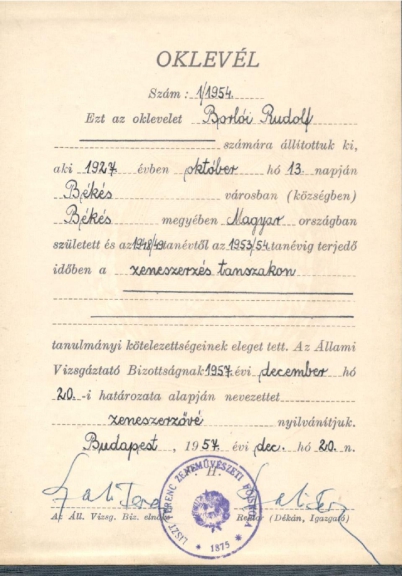 OKLEVÉL
Szám: 1/1954.
Ezt az oklevelet Borlói Rudolf
számára állítottuk ki,
aki 1927 évben október hó 13. napján
Békés városban (községben)
Békés megyében Magyar országban
született és az 1948/49 tanévtől az 1953/54 tanévig terjedő
időben a zeneszerzés tanszakon
tanulmányi kötelezettségeinek eleget tett. Az Állami
Vizsgáztató Bizottságnak 1957 évi december hó
20.-i határozata alapján nevezettet
zeneszerzővé nyilvánítjuk.
Budapest, 1957. évi dec. hó 20. n.
P. H.
LISZT FERENC ZENEMŰVÉSZETI FŐISKOLA
* 1875 *
Az Áll. Vizsg. Biz. elnöke
Rektor (Dékán, Igazgató)